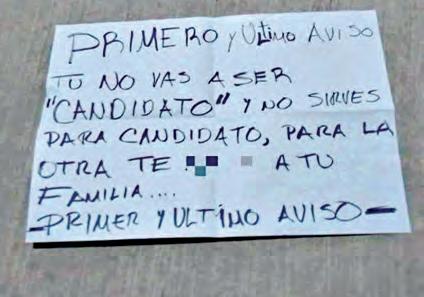 PRIMERO y Ultimo AVISO
TU NO VAS A SER
"CANDIDATO" Y NO SIRVES
PARA CANDIDATO, PARA LA
OTRA TE A TU
FAMILIA....
-PRIMER Y ULTIMO AVISO-